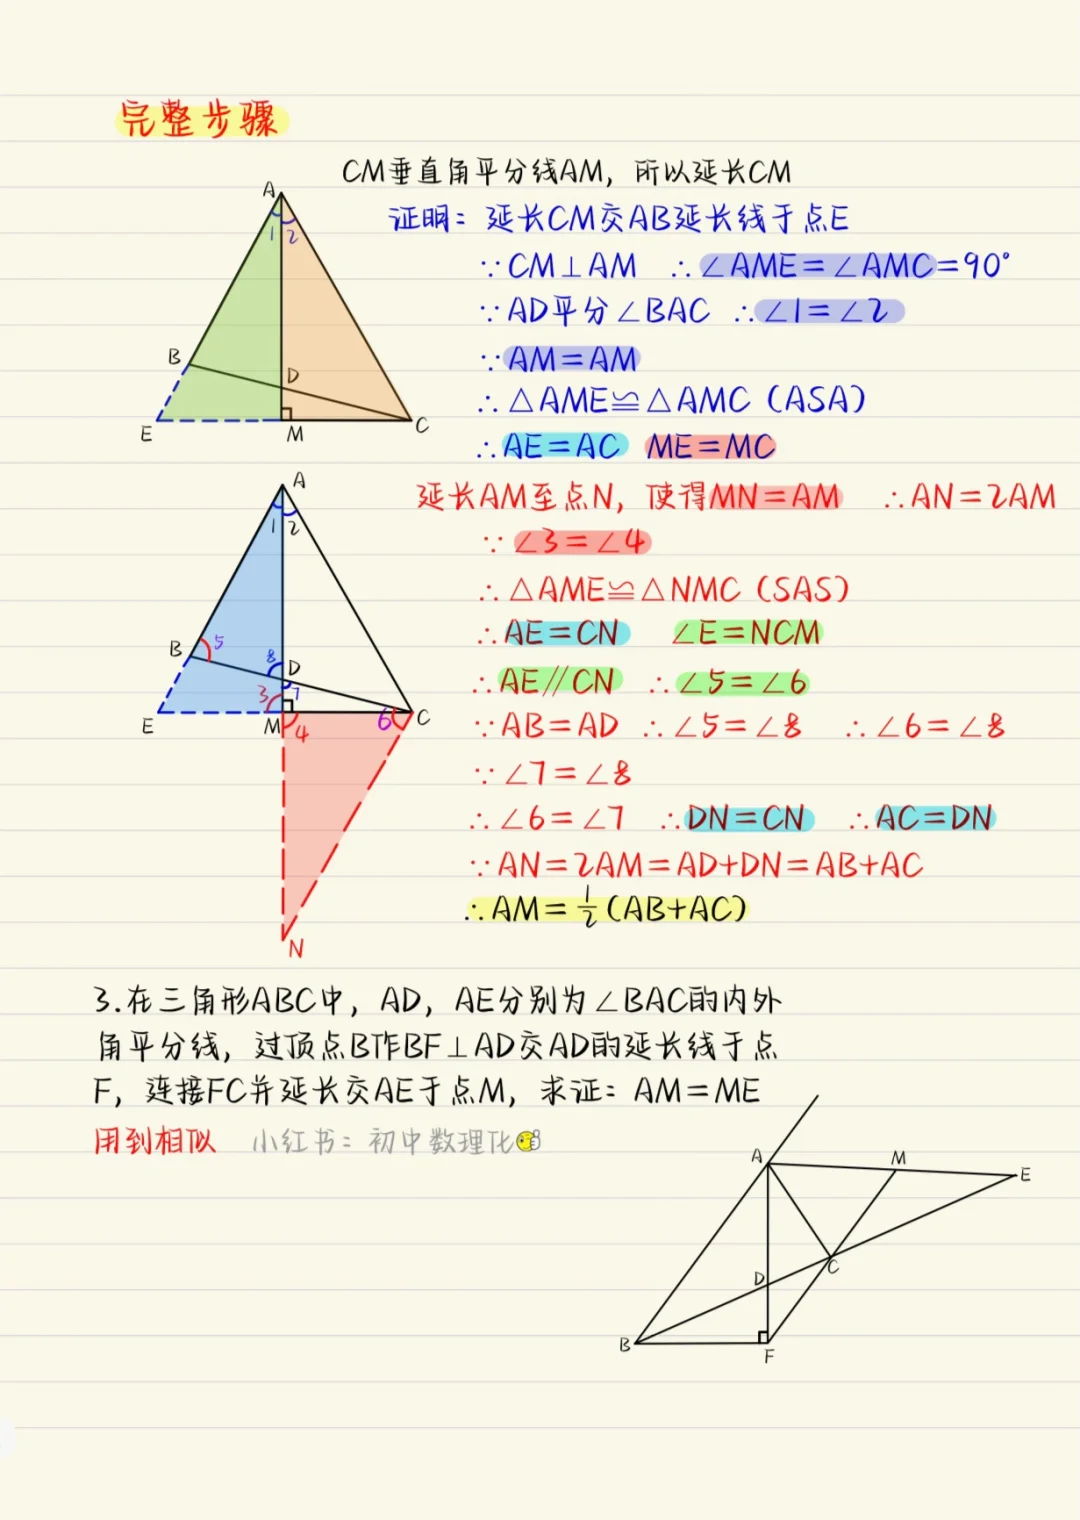 完整步骤
CM垂直角平分线AM，所以延长CM
证明：延长CM交AB延长线于点E
∵CM⊥AM ∴∠AME=∠AMC=90°
∵AD平分∠BAC ∴∠1=∠2
∵AM=AM
∴△AME≌△AMC（ASA）
∴AE=AC ME=MC
A
1 2
B
D
E
M
C
延长AM至点N，使得MN=AM ∴AN=2AM
∵∠3=∠4
∴△AME≌△NMC（SAS）
∴AE=CN ∠E=NCM
∴AE∥CN ∴∠5=∠6
∵AB=AD ∴∠5=∠8 ∴∠6=∠8
∵∠7=∠8
∴∠6=∠7 ∴DN=CN ∴AC=DN
∵AN=2AM=AD+DN=AB+AC
∴AM=½(AB+AC)
A
1 2
B 5
8 D
3 7
E M 4 6 C
N
3.在三角形ABC中，AD，AE分别为∠BAC的内外
角平分线，过顶点B作BF⊥AD交AD的延长线于点
F，连接FC并延长交AE于点M，求证：AM=ME
用到相似 小红书：初中数理化
A
M
E
C
D
B
F